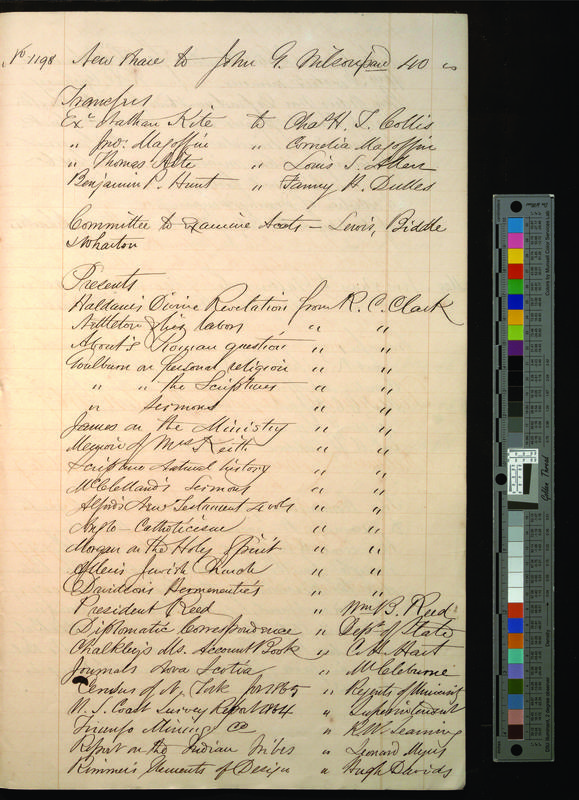 No 1198 New share to John G. Wilson paid 40 –
Transfers
Exr Nathan Kite to Chas H. T. Collis
" Jno. Magoffin " Cornelia Magoffin
" Thomas Kite " Louis S.
Benjamin P. Hunt " Fanny H. Dulles
Committee to Examine Accts – Lewis, Biddle
& Wharton
Presents
Haldane's Divine Revelation from R. C. Clark
Nettleton & his labors " "
About's Roman question " "
Goulburn on personal religion " "
" " the Scriptures " "
" Sermons " "
James on the Ministry " "
Memoir of Mrs Keith " "
Scripture Natural history " "
McClelland's Sermons " "
Alford's New Testament 2 vols " "
Anglo-Catholicism " "
Morgan on the Holy Spirit " "
Jewish Church " "
Davidson's Hermeneutics " "
President Reed " Wm B. Reed
Diplomatic Correspondence " Dept of State
Chalkley's Ms. Account Book " C. H. Hart
Journals Nova Scotia " McCleburne
Census of N. York for 1865 " Regents of Universit
U. S. Coast Survey Report 1864 " Superintendent
Triunfo Mining Co " Leaming
Report on the Indian tribes " Leonard Myers
Rimmer's Elements of Design " Hugh Davids